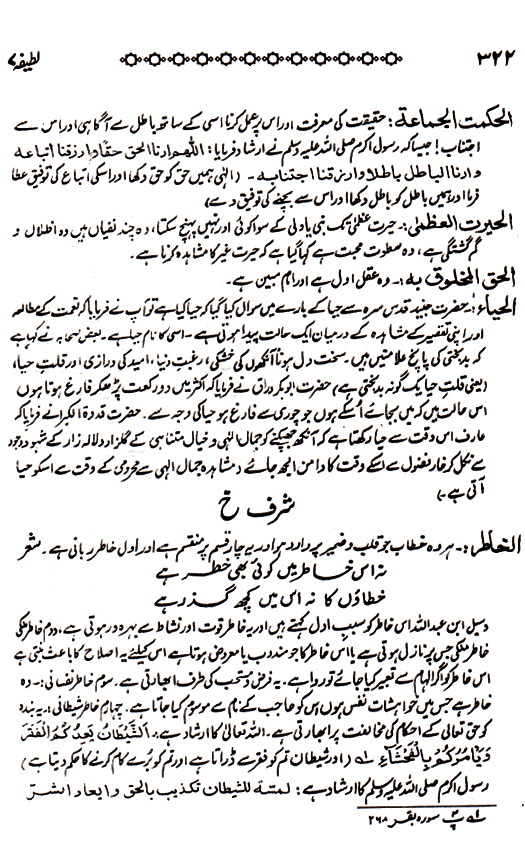 ۳۲۲ لطیفہ ۷
الحکمت الجماعة: حقیقت کی معرفت اور اس پر عمل کرنا اسی کے ساتھ باطل سے آگاہی اور اس سے
اجتناب! جیسا کہ رسول اکرم صلی اللہ علیہ وسلم نے ارشاد فرمایا: اللھم ارنا الحق حقا و ارزقنا اتباعہ
و ارنا الباطل باطلا و ارزقنا اجتنابہ ۔ (الٰہی ہمیں حق کو حق دکھا اور اسکی اتباع کی توفیق عطا
فرما اور ہمیں باطل کو باطل دکھا اور اس سے بچنے کی توفیق دے)
الحیرت العظمیٰ: حیرت عظمیٰ تک نبی یا ولی کے سوا کوئی اور نہیں پہنچ سکتا، وہ چند نفیاں ہیں وہ اظلال و
گم گشتگی ہے، وہ سطوت محبت ہے کہا گیا ہے کہ حیرت غیر کا مشاہدہ کرنا ہے۔
الحق المخلوق بہ: ۔ وہ عقل اول ہے اور امام مبین ہے۔
الحیاء: حضرت جنید قدس سرہ سے حیا کے بارے میں سوال کیا گیا کہ حیا کیا ہے تو آپ نے فرمایا کہ نعمت کے مطالعہ
اور اپنی تقصیر کے مشاہدہ کے درمیان ایک حالت پیدا ہوتی ہے۔ اسی کا نام حیا ہے۔ بعض نے کہا ہے
کہ بدبختی کی پانچ علامتیں ہیں۔ سخت دل ہونا آنکھوں کی خشکی، رغبتِ دنیا، امید کی درازی اور قلتِ حیا،
(یعنی قلتِ حیا یک گونہ بدبختی ہے) حضرت ابوبکر وراق نے فرمایا کہ اکثر میں دو رکعت پڑھ کر فارغ ہوتا ہوں
اس حالت میں کہ میں بجائے اُسکے ہوں جو چوری سے فارغ ہو حیا کی وجہ سے۔ حضرت قدوۃ الکبرا نے فرمایا کہ
عارف اس وقت سے حیا رکھتا ہے کہ آنکھ جھپکنے کو جمال الٰہی و خیال متناہی کے گلزار و لالہ زار کے شہود و وجود
سے نکل کر خار فضول سے اسکے وقت کا دامن الجھ جائے (مشاہدہ جمال الٰہی سے محرومی کے وقت سے اسکو حیا
آتی ہے۔)
شرف خ
الخاطر: ۔ ہر وہ خطاب جو قلب و ضمیر پر وارد ہو اور یہ چار قسم پر منقسم ہے اور اول خاطر ربانی ہے۔ شعر
نہ اس خاطر میں کوئی بھی خطر ہے
خطاؤں کا نہ اس میں کچھ گذر ہے
وسیل ابن عبداللہ اس خاطر کو سببِ اول کہتے ہیں اور یہ خاطر قوت اور نشاط سے بہرہ ور ہوتی ہے، دوم خاطر ملکی
خاطر ملکی جس پر نازل ہوتی ہے یا اس خاطر کا جو مندوب یا مفروض ہوتا ہے اس کیلئے یہ اصلاح کا باعث بنتی ہے
اس خاطر کو اگر الہام سے تعبیر کیا جائے تو روا ہے۔ یہ فرض و مستحب کی طرف ابھارتی ہے۔ سوم خاطر نفسانی: ۔ وہ
خاطر ہے جس میں خواہشات نفس ہوں اس کو صاحب کے نام سے موسوم کیا جاتا ہے۔ چہارم خاطر شیطانی: یہ بندہ
کو حق تعالیٰ کے احکام کی مخالفت پر ابھارتی ہے۔ اللہ تعالیٰ کا ارشاد ہے: اَلشَّيْطَانُ يَعِدُكُمُ الْفَقْرَ
وَيَأْمُرُكُمْ بِالْفَحْشَاءِ لہ (اور شیطان تم کو فقر سے ڈراتا ہے اور تم کو بُرے کام کرنے کا حکم دیتا ہے)
رسول اکرم صلی اللہ علیہ وسلم کا ارشاد ہے: لمتہ للشیطان تکذیب بالحق و ایعاد الشر
لہ پ ۳ سورہ بقر ۲۶۸